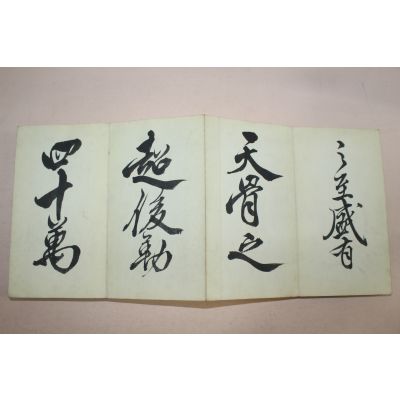 之至盛有
天骨之
超後勤
四十萬